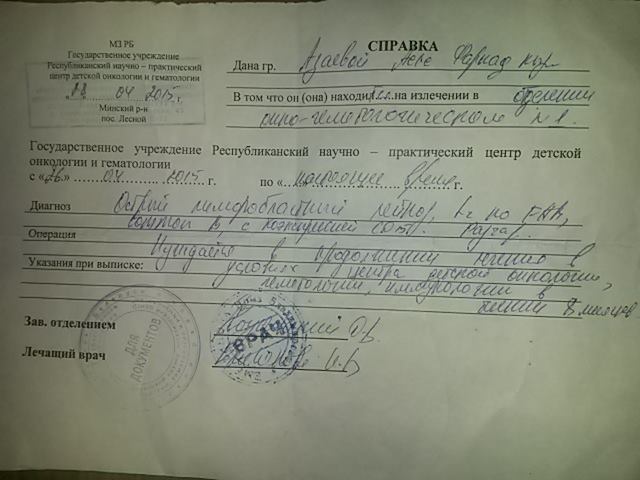 МЗ РБ
Государственное учреждение
Республиканский научно – практический
центр детской онкологии и гематологии
04 2015 г.
Минский р-н
пос. Лесной
СПРАВКА
Дана гр. Азаевой Асе Фархад кызы
В том что он (она) находилась на излечении в отделении
онко-гематологическом №1.
Государственное учреждение Республиканский научно – практический центр детской
онкологии и гематологии
с «26» 04 2015 г. по « настоящее время г.
Диагноз Острый лимфобластный лейкоз, L2 по FAB,
common B, с
Операция
Нуждается в продолжении лечения в
Указания при выписке: условиях центра детской онкологии,
гематологии, иммунологии в
течение 8 месяцев
Зав. отделением
Лечащий врач
ДЛЯ ДОКУМЕНТОВ
ВРАЧ